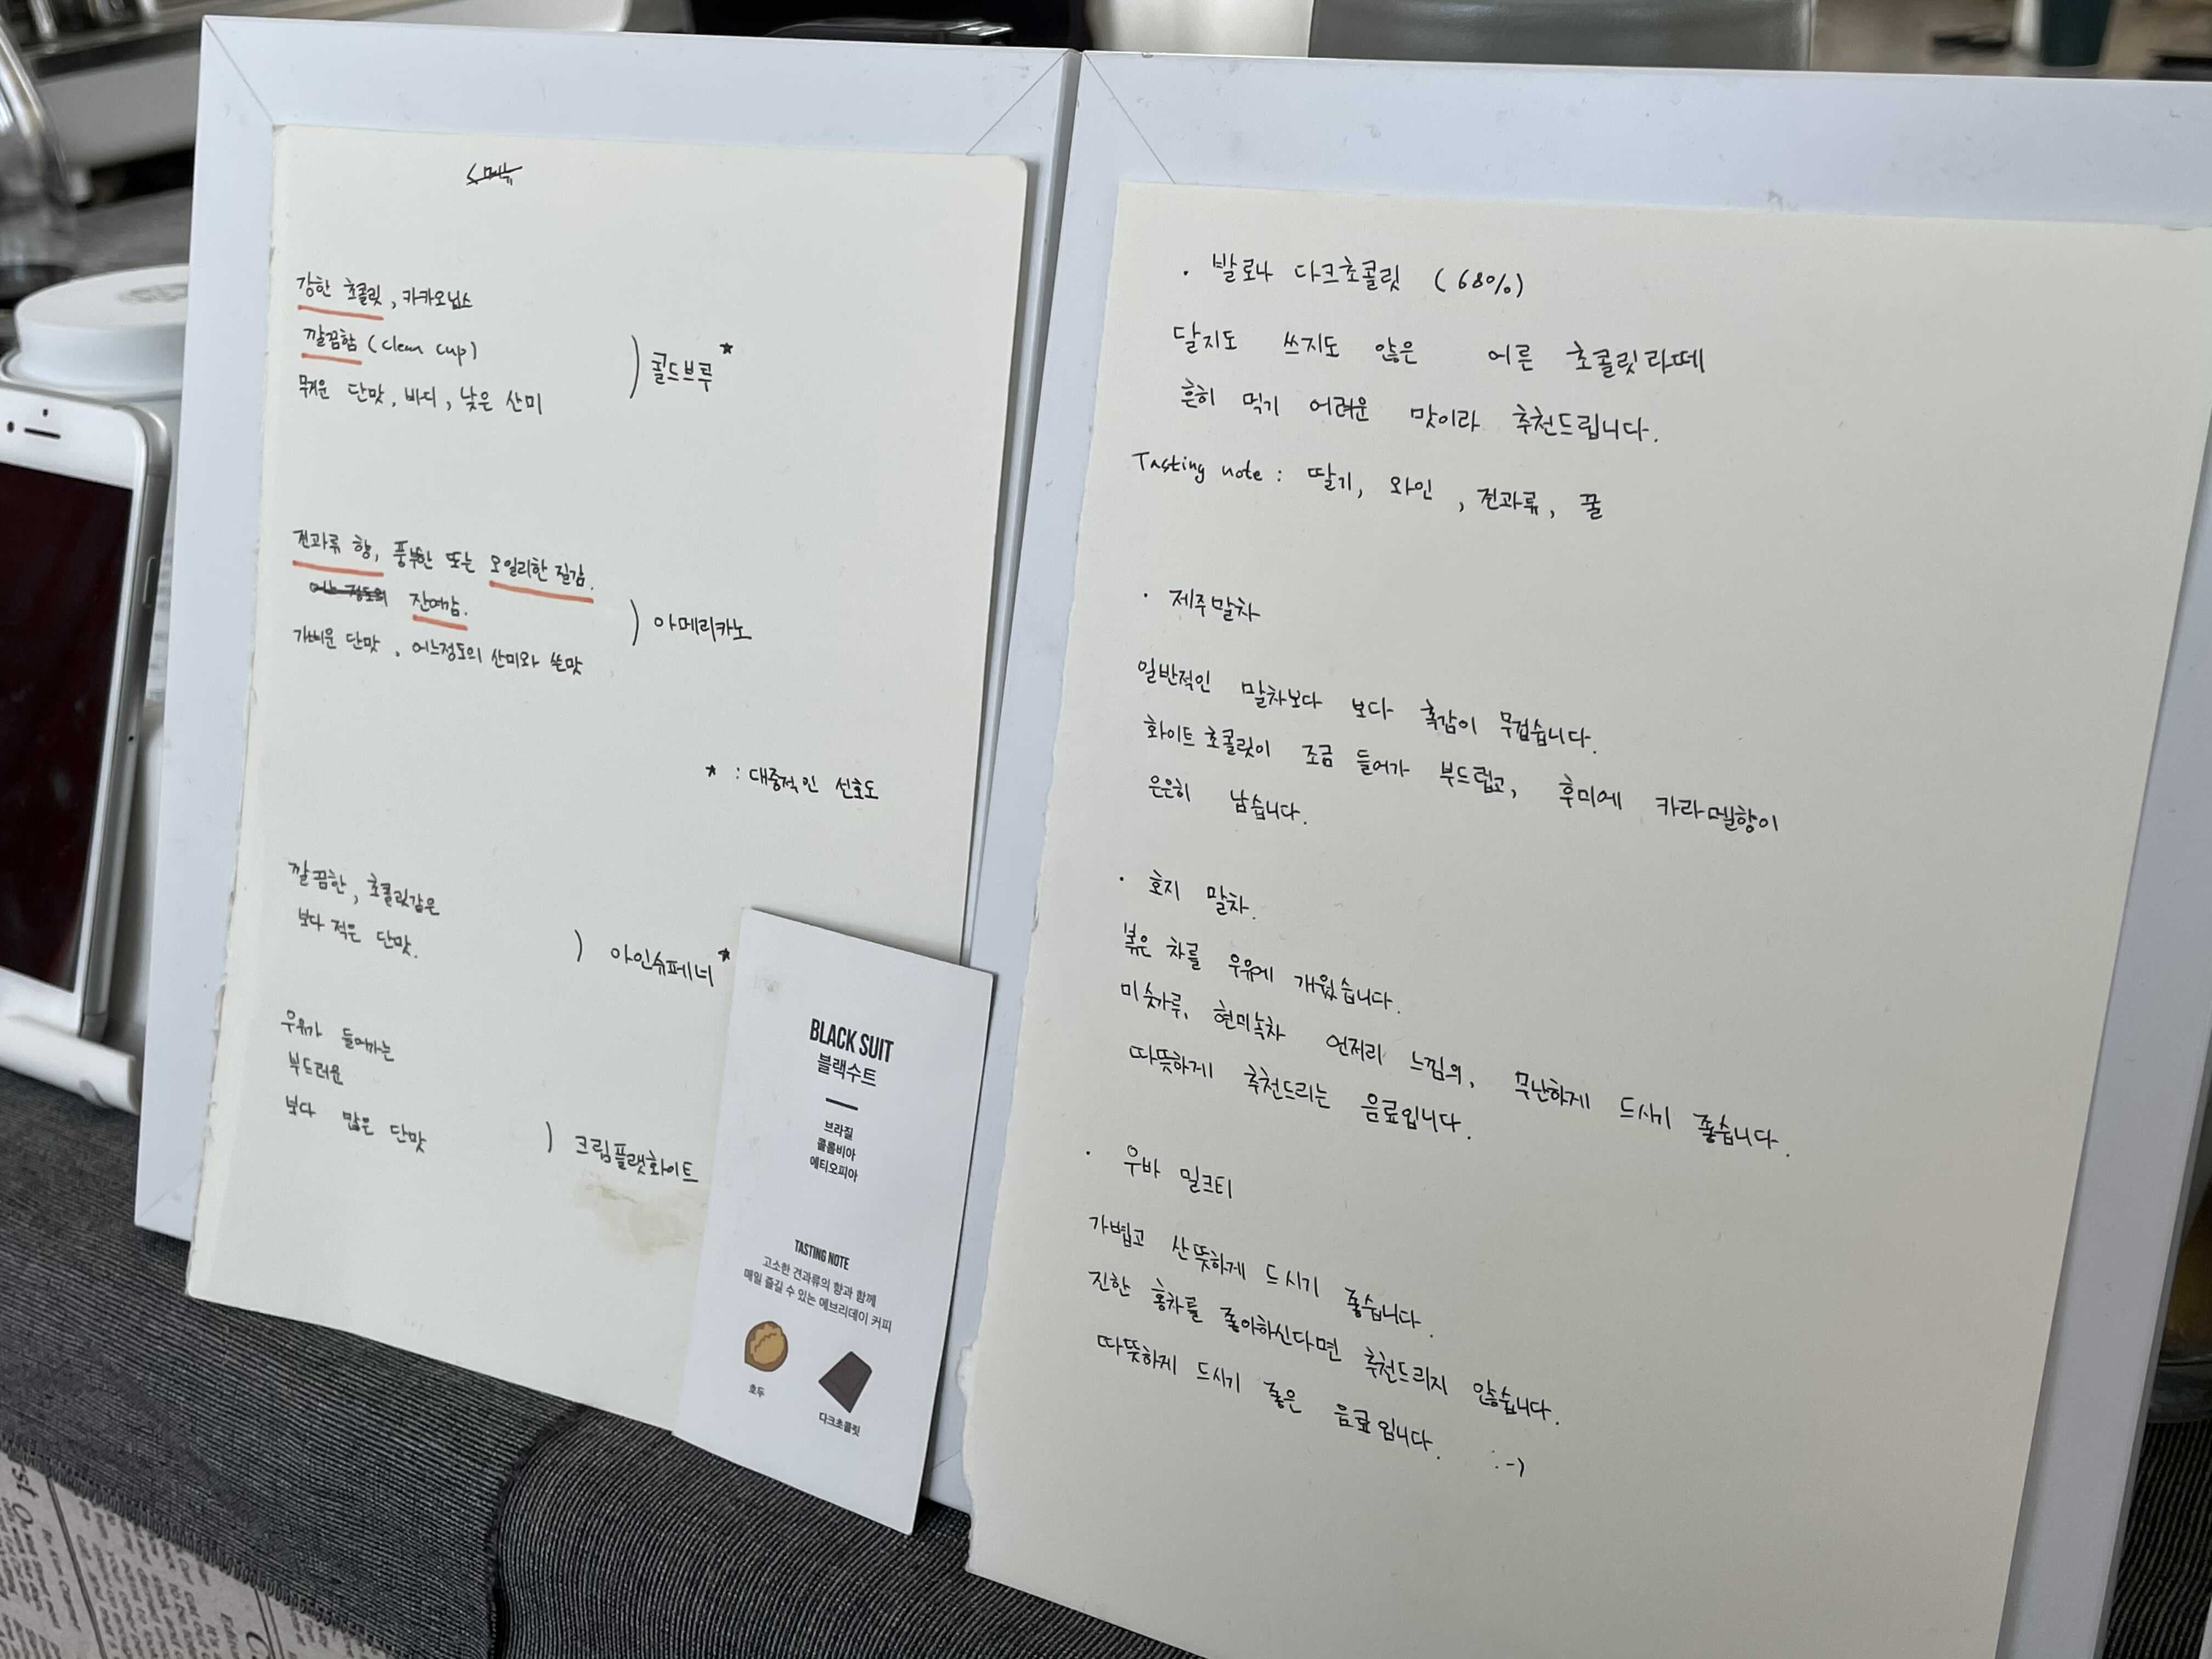 강한 초콜릿, 카카오닙스
깔끔함 (clean cup)
무거운 단맛, 바디, 낮은 산미
) 콜드브루*
견과류 향, 풍부한 또는 오일리한 질감.
어느 정도의 잔여감.
가벼운 단맛, 어느정도의 산미와 쓴맛
) 아메리카노
* : 대중적인 선호도
깔끔한, 초콜릿같은
보다 적은 단맛.
) 아인슈페너*
우유가 들어가는
부드러운
보다 많은 단맛
) 크림플랫화이트
BLACK SUIT
블랙수트
브라질
콜롬비아
에티오피아
TASTING NOTE
고소한 견과류의 향과 함께
매일 즐길 수 있는 에브리데이 커피
호두
다크초콜릿
· 발로나 다크초콜릿 (68%)
달지도 쓰지도 않은 어른 초콜릿라떼
흔히 먹기 어려운 맛이라 추천드립니다.
Tasting note : 딸기, 와인, 견과류, 꿀
· 제주말차
일반적인 말차보다 보다 촉감이 무겁습니다.
화이트 초콜릿이 조금 들어가 부드럽고, 후미에 카라멜향이
은은히 남습니다.
· 호지 말차.
볶은 차를 우유에 개웠습니다.
미숫가루, 현미녹차 언저리 느낌의, 무난하게 드시기 좋습니다.
따뜻하게 추천드리는 음료입니다.
· 우바 밀크티
가볍고 산뜻하게 드시기 좋습니다.
진한 홍차를 좋아하신다면 추천드리지 않습니다.
따뜻하게 드시기 좋은 음료입니다. :-)